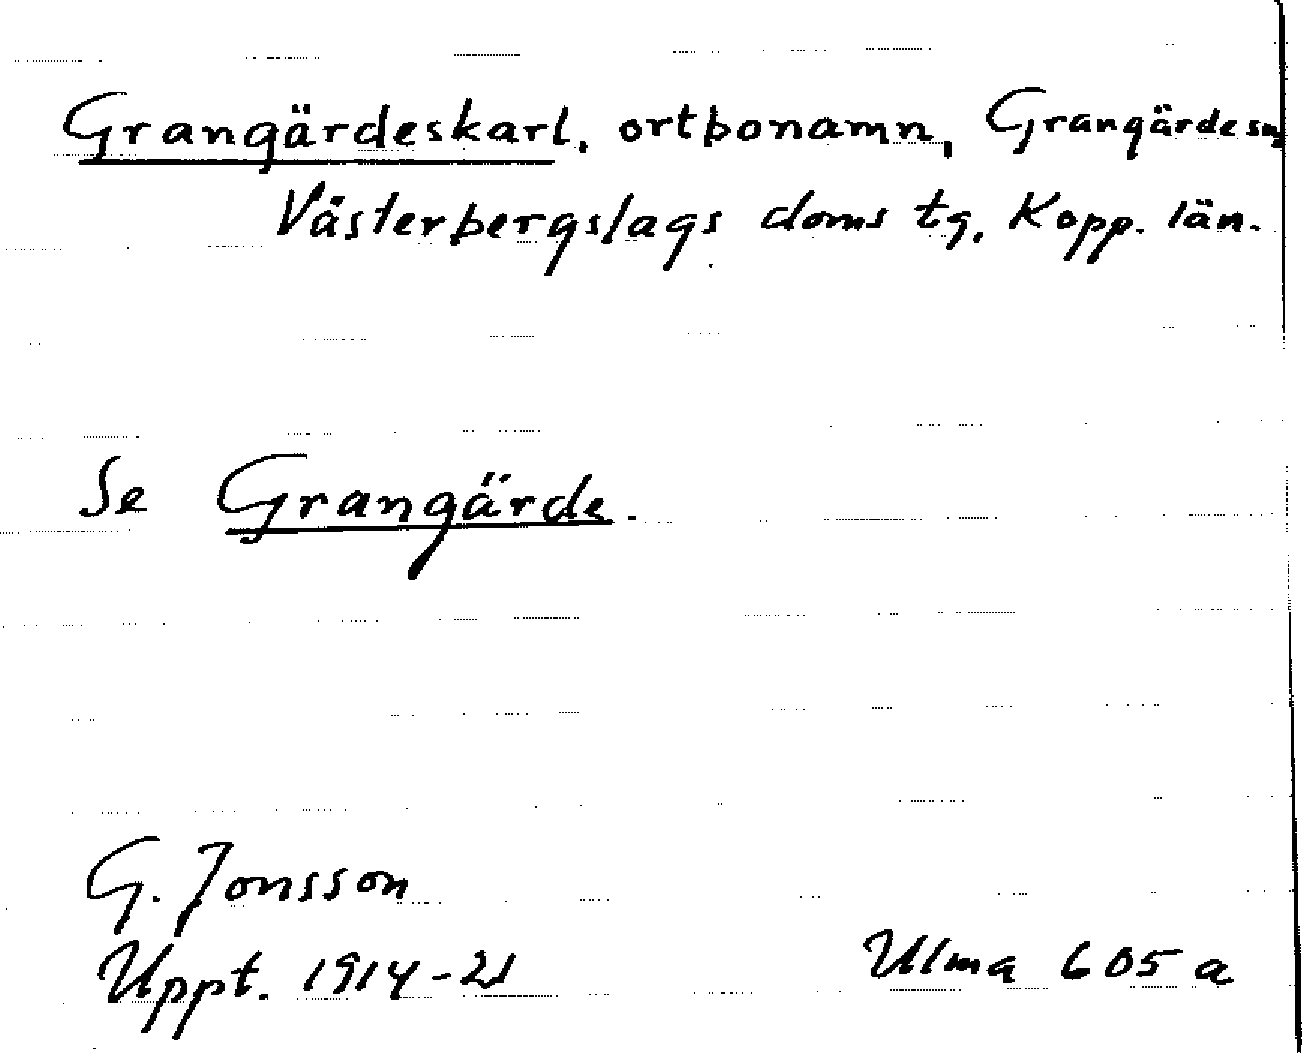 Grangärdeskarl, ortbonamn, Grangärde sn,
Västerbergslags doms tg, Kopp. län.
Se Grangärde.
G. Jonsson
Uppt. 1914-21
Ulma 605 a